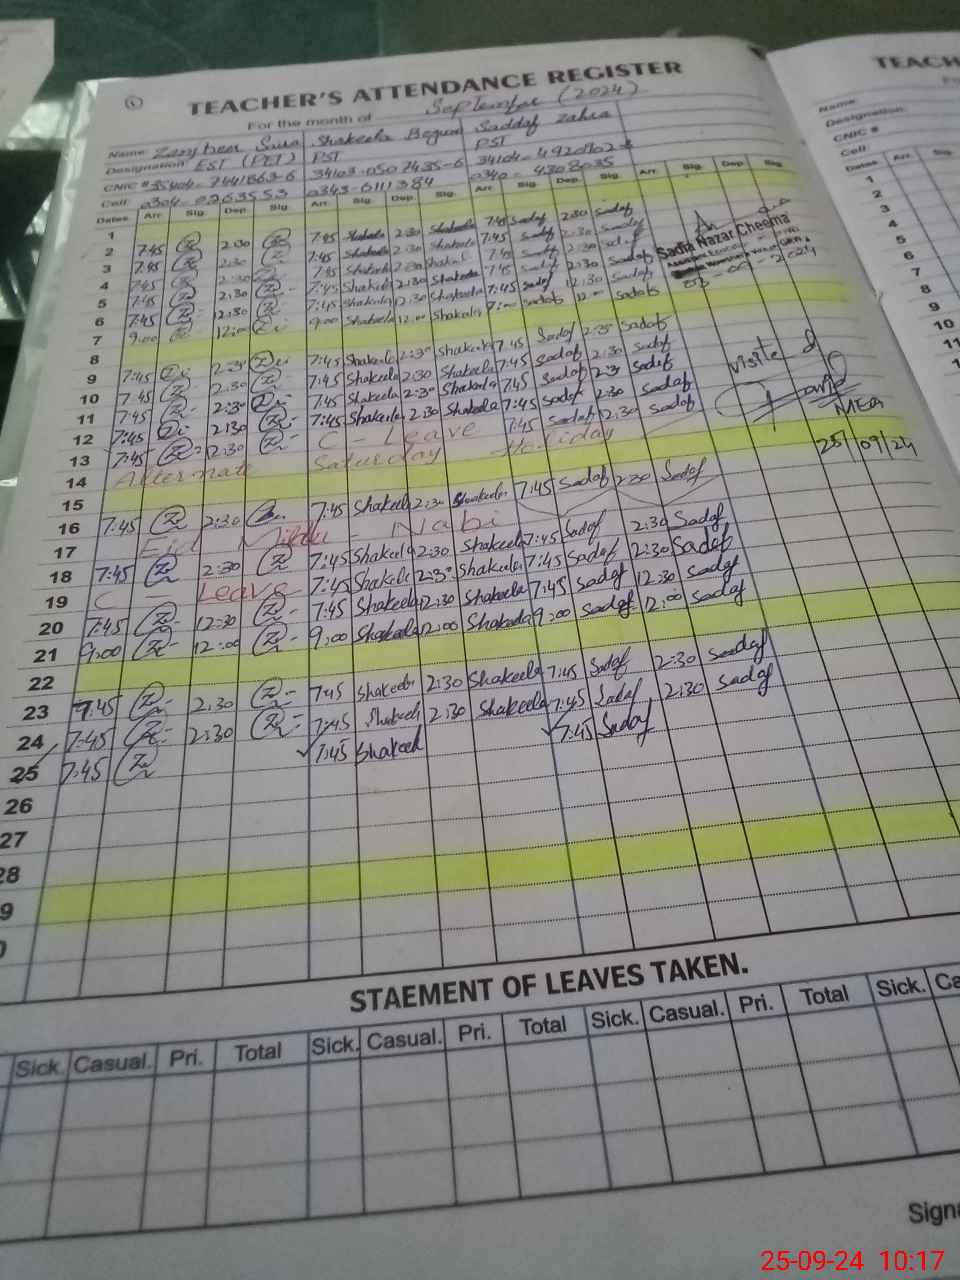 TEACHER'S ATTENDANCE REGISTER
For the month of September (2024)
Name Shakeela Begum Saddaf Zahra
Designation EST (PET) PST PST
CNIC # 34103-0507435-6
Cell: 0304-0263553 0343-6111384 0340-4308035
Dates Arr. Sig. Dep. Sig. Arr. Sig. Dep. Sig. Arr. Sig. Dep. Sig. Arr. Sig. Dep. Sig.
1
2 7:45 2:30 7:45 Shakeela 2:30 Shakeela 7:45 Sadaf 2:30 Sadaf
3 7:45 2:30 7:45 Shakeela 2:30 Shakeela 7:45 Sadaf 2:30 Sadaf
4 7:45 2:30 7:45 Shakeela 2:30 Shakeela 7:45 Sadaf 2:30 Sadaf
Sadia Nazar Cheema
5 7:45 2:30 7:45 Shakeela 2:30 Shakeela 7:45 Sadaf 2:30 Sadaf
6 7:45 12:30 7:45 Shakeela 12:30 Shakeela 7:45 Sadaf 12:30 Sadaf
7 9:00 12:00 9:00 Shakeela 12:00 Shakeela Sadaf Sadaf
8
9 7:45 2:30 7:45 Shakeela 2:30 Shakeela 7:45 Sadaf 2:30 Sadaf
10 7:45 2:30 7:45 Shakeela 2:30 Shakeela 7:45 Sadaf 2:30 Sadaf
11 7:45 2:30 7:45 Shakeela 2:30 Shakeela 7:45 Sadaf 2:30 Sadaf
12 7:45 2:30 7:45 Shakeela 2:30 Shakeela 7:45 Sadaf 2:30 Sadaf
13 7:45 12:30 C - Leave 7:45 Sadaf 12:30 Sadaf
14 Alternate Saturday Holiday
Visited
MEA
25/09/24
15
16 7:45 2:30 7:45 Shakeela 2:30 Shakeela 7:45 Sadaf 2:30 Sadaf
17 Eid Milad - Nabi
18 7:45 2:30 7:45 Shakeela 2:30 Shakeela 7:45 Sadaf 2:30 Sadaf
19 C - Leave 7:45 Shakeela 2:30 Shakeela 7:45 Sadaf 2:30 Sadaf
20 7:45 12:30 7:45 Shakeela 12:30 Shakeela 7:45 Sadaf 12:30 Sadaf
21 9:00 12:00 9:00 Shakeela 12:00 Shakeela 9:00 Sadaf 12:00 Sadaf
22
23 7:45 2:30 7:45 Shakeela 2:30 Shakeela 7:45 Sadaf 2:30 Sadaf
24 7:45 2:30 7:45 Shakeela 2:30 Shakeela 7:45 Sadaf 2:30 Sadaf
25 7:45 7:45 Shakeel 7:45 Sadaf
26
27
28
9
0
STAEMENT OF LEAVES TAKEN.
Sick. Casual. Pri. Total Sick. Casual. Pri. Total Sick. Casual. Pri. Total Sick. Ca
Signa
TEACH
Name:
Designation:
CNIC #
Cell:
Dates Arr. Sig.
1
2
3
4
5
6
7
8
9
10
11
25-09-24 10:17